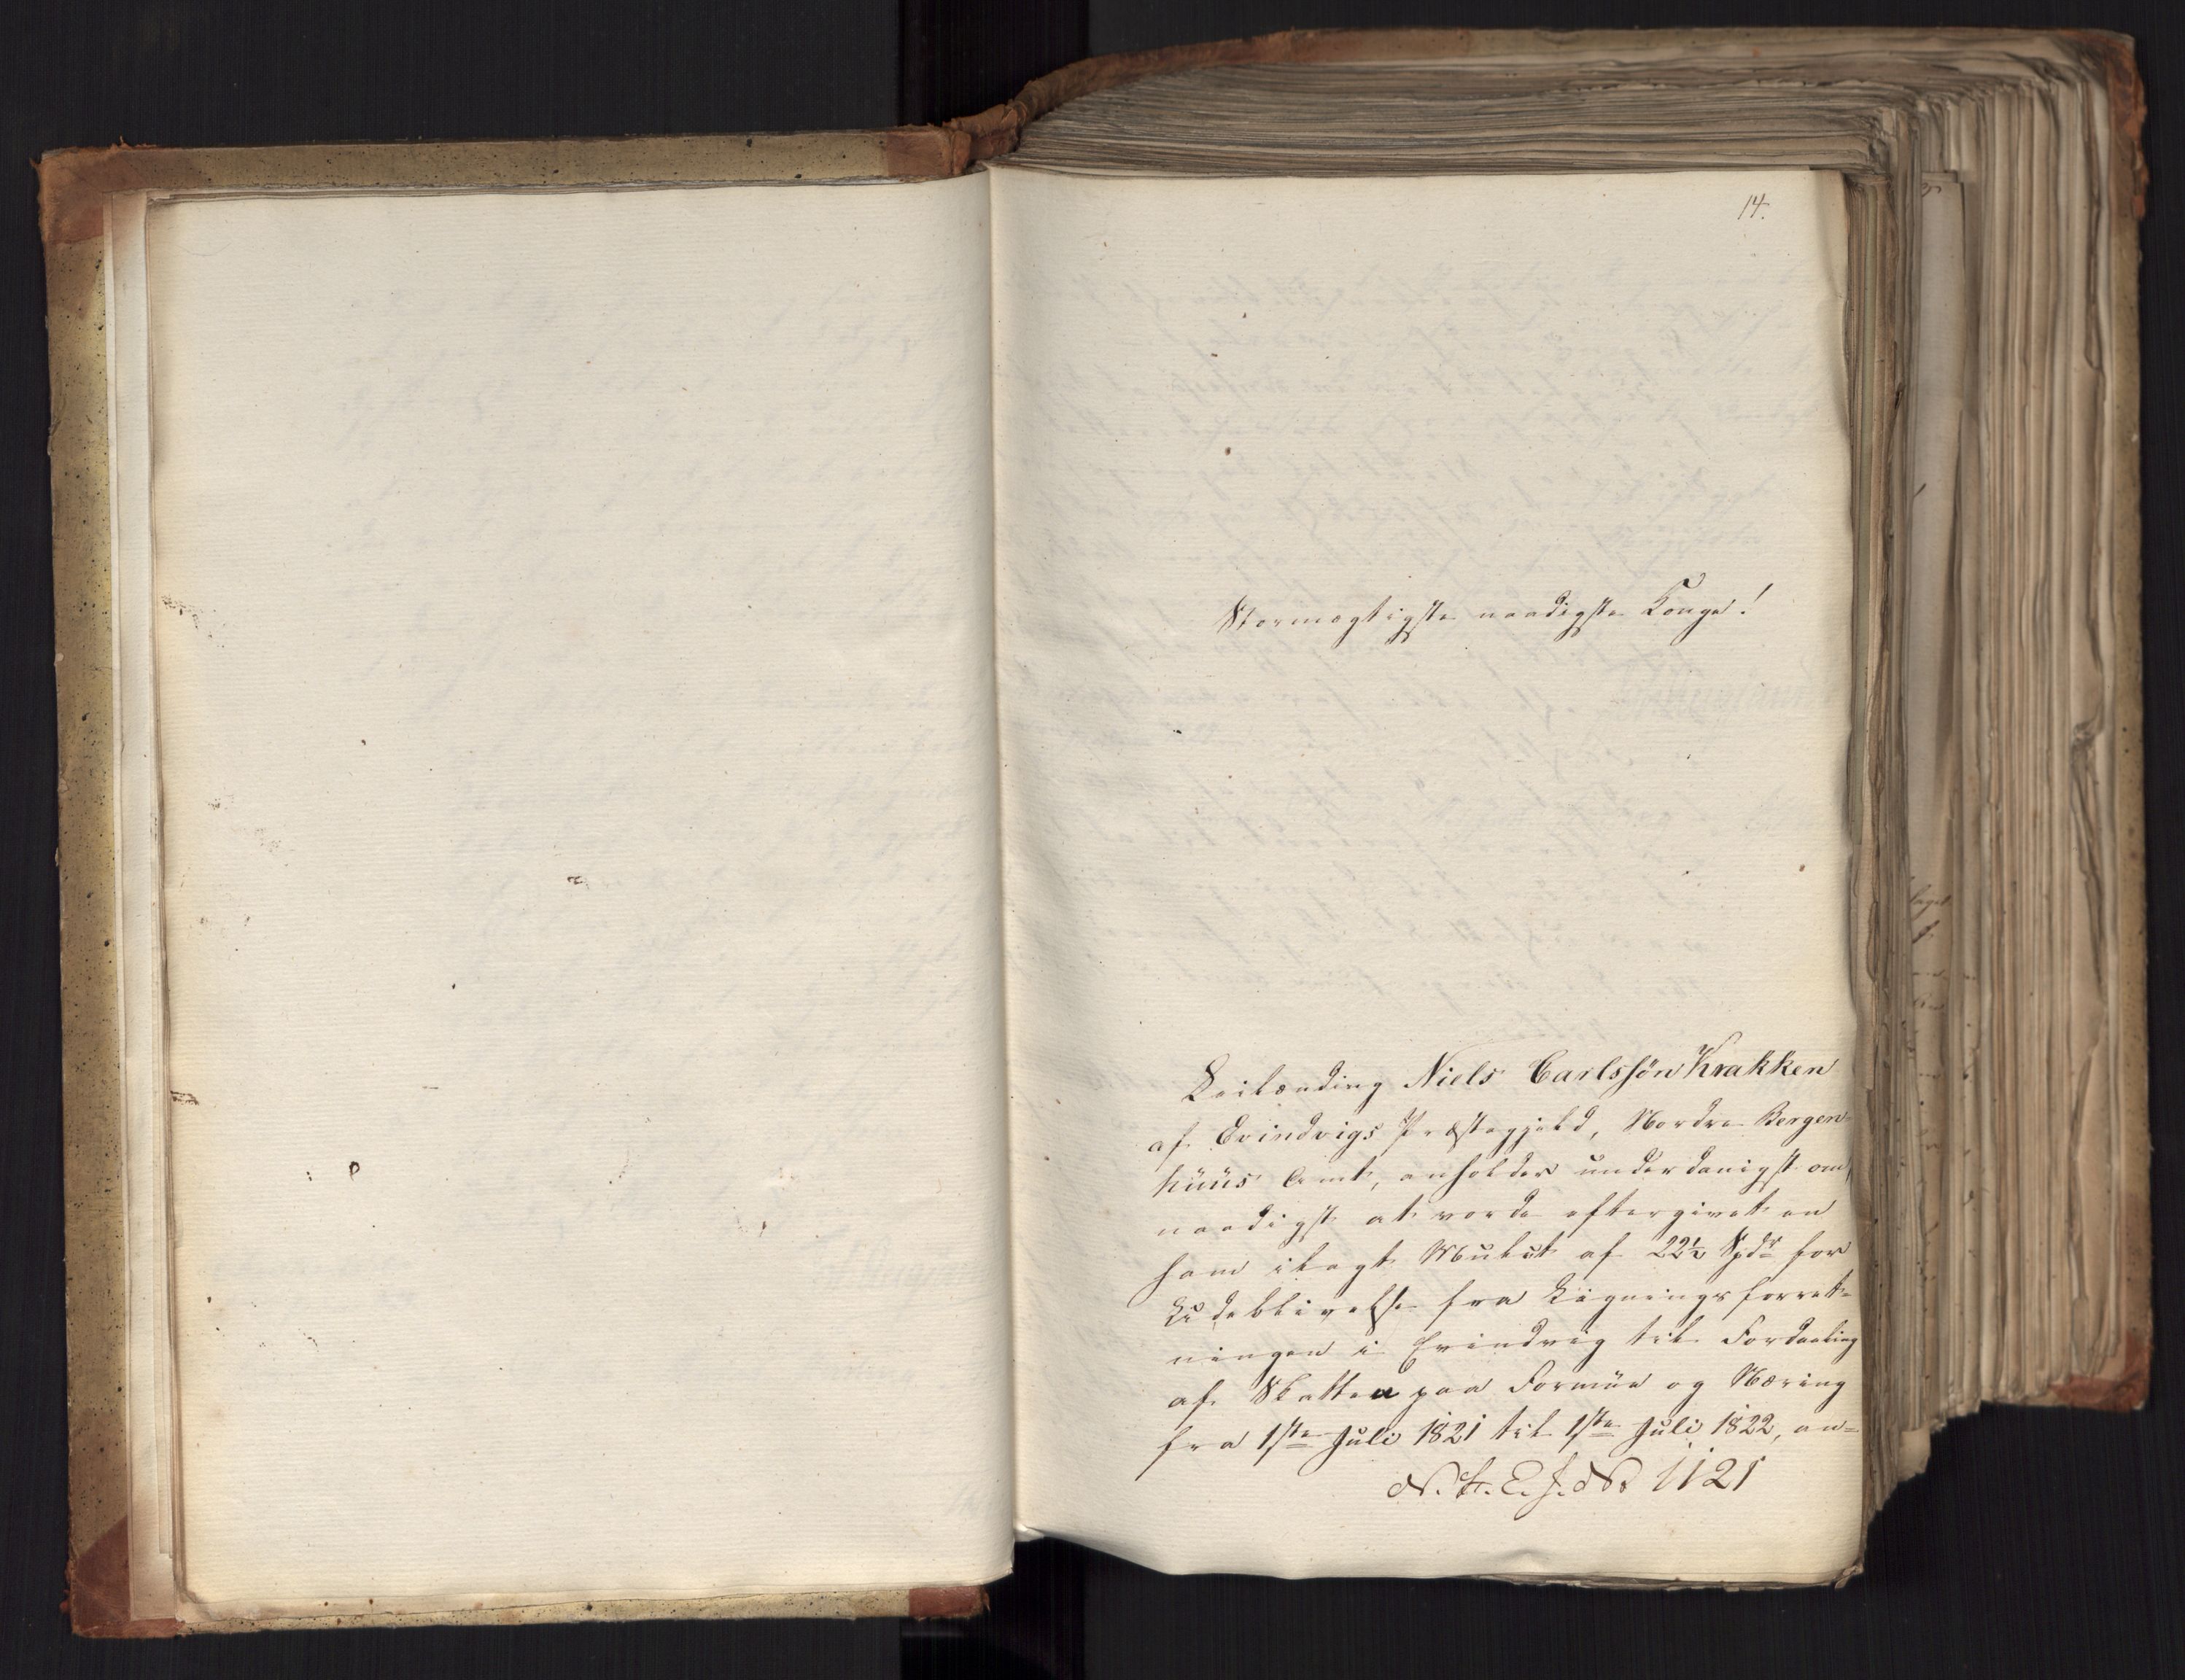 14.
Stormægtigste naadigste Konge!
Leilænding Niels Carlssön Krakken
af Evindvigs Præstegjeld, Nordre Bergen-
huus Amt, anholder underdanigst om,
naadigst at vorde eftergivet en
ham ilagt Mulct af 22½ Spdr for
Udeblivelse fra Ligningsforret-
ningen i Evindvig til Fordeeling
af Skatten paa Formue og Næring
fra 1ste Juli 1821 til 1ste Juli 1822, an-
N. F. E. J. No 1121